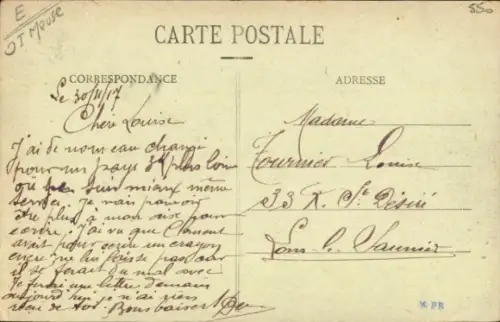 E
OT Meuse
550
CARTE POSTALE
CORRESPONDANCE
ADRESSE
Le 30/11/17
Cheri Louise
J'ai de nouveau changé
pour un pays plus loin
ou sur miaux même
Je pouvoir
être plus a mon pour
ecrire. J'ai vu que Clement
avait pour ecrire un crayon
encre ne lui laisse pas car
il se ferait du mal avec
Je ferai une lettre demain
aujourd'hui je n'ai rien
de toi. Bons baisers
Madame
Tournier Louise
33 R. St Désiré
Lons-le-Saunier